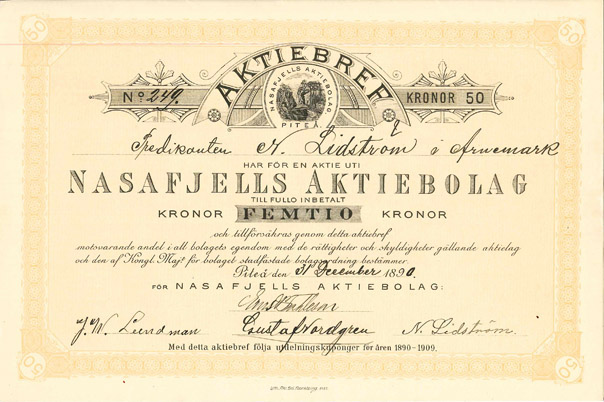 50 50
AKTIEBREF
NASAFJELLS AKTIEBOLAG
PITEÅ
No 249.
KRONOR 50
Predikanten N. Lidström i Arnemark
HAR FÖR EN AKTIE UTI
NASAFJELLS AKTIEBOLAG
TILL FULLO INBETALT
KRONOR FEMTIO KRONOR
och tillförsäkras genom detta aktiebref
motsvarande andel i all bolagets egendom med de rättigheter och skyldigheter gällande aktielag
och den af Kongl. Majt för bolaget stadfästade bolagsordning bestämmer.
Piteå den 31 December 1890.
FÖR NASAFJELLS AKTIEBOLAG:
J. W. Lundman Gustaf Nordgren N. Lidström.
Med detta aktiebref följa utdelningskuponger för åren 1890-1909.
50 50